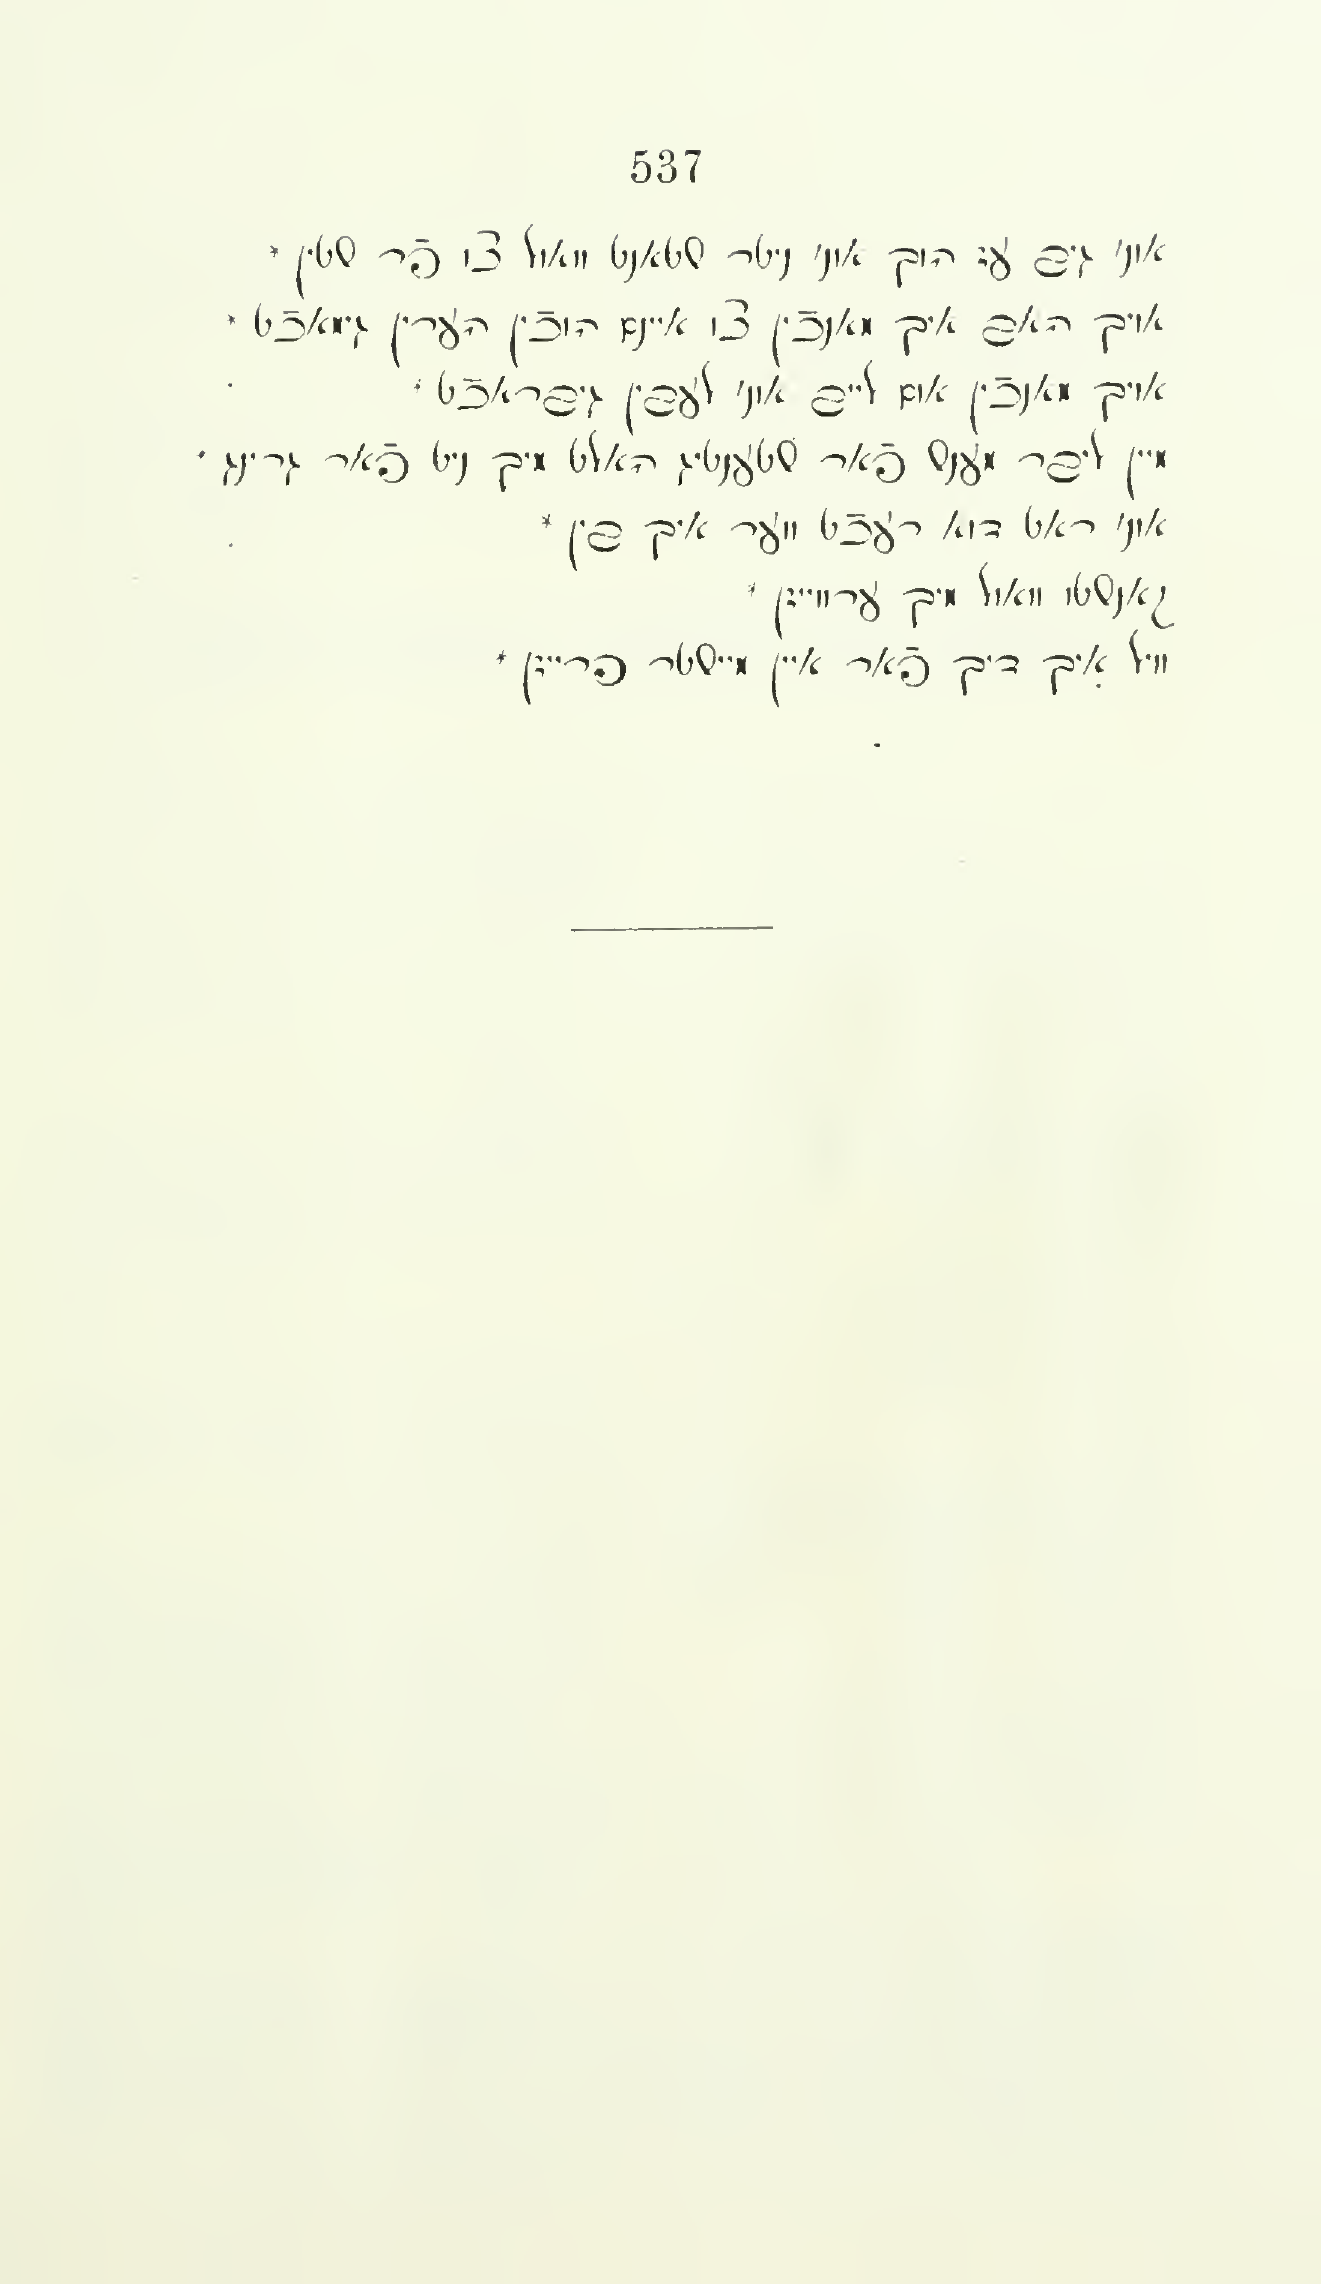 537
אונ׳ גיפ עז הוך אונ׳ ניטר שטאנט וואול צו פֿר שטין *
אויך האפ איך מאנכֿין צו איינם הוכֿין הערין גימאכֿט *
אויך מאנכֿין אום לייפ אונ׳ לעפין גיפראכֿט *
מיין ליפר מענש פֿאר שטענטיג האלט מיך ניט פֿאר גרינג *
אונ׳ ראט דוא רעכֿט ווער איך פין *
קאנשטו וואול מיך ערווייזן *
וויל איך דיך פֿאר איין מיישטר פרייזן *